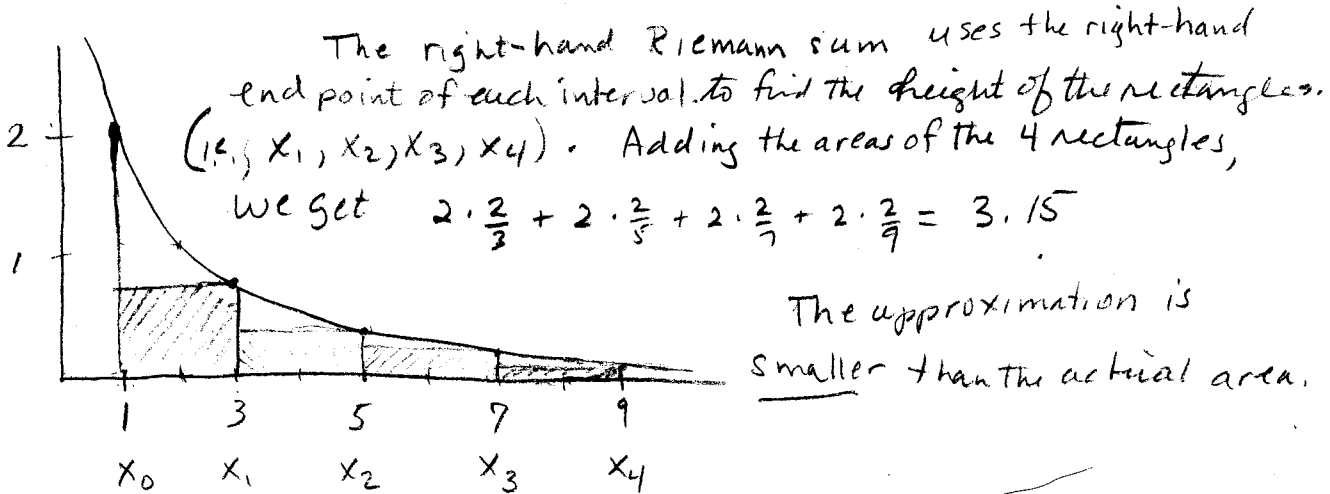 The right-hand Riemann sum uses the right-hand
end point of each interval to find the height of the rectangles.
(i.e., x₁, x₂, x₃, x₄). Adding the areas of the 4 rectangles,
we get 2·2/3 + 2·2/5 + 2·2/7 + 2·2/9 = 3.15
2
1
The approximation is
smaller than the actual area.
1 3 5 7 9
x₀ x₁ x₂ x₃ x₄